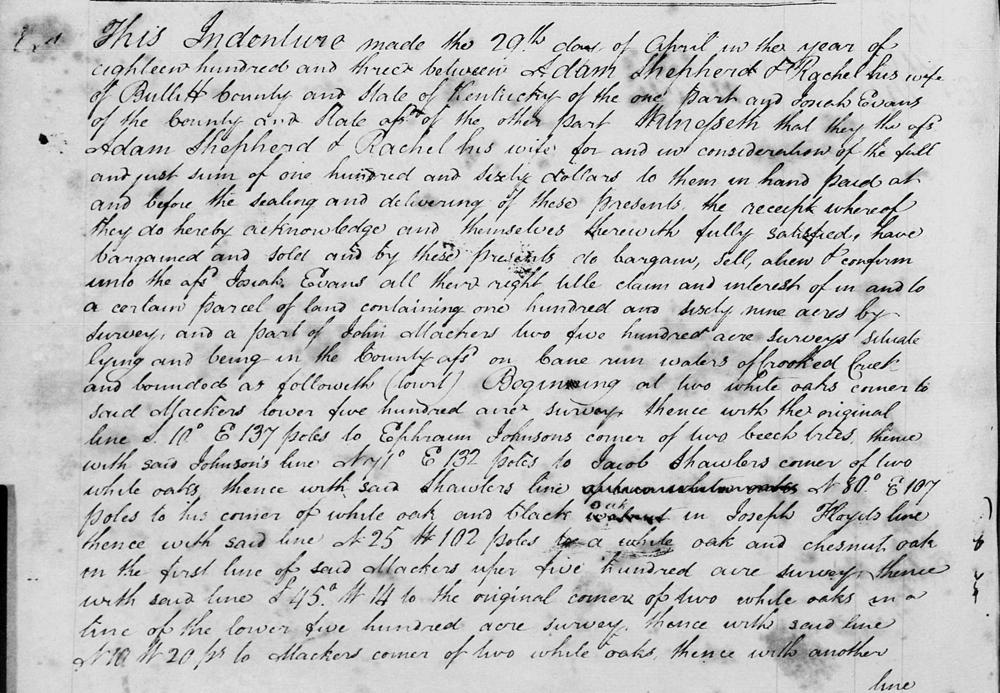 This Indenture made the 29th day of April in the year of
eighteen hundred and three between Adam Shepherd & Rachel his wife
of Bullitt County and State of Kentucky of the one part and Josiah Evans
of the County and State afsd of the other part Witnesseth that they the afs
Adam Shepherd & Rachel his wife for and in consideration of the full
and just sum of one hundred and sixty dollars to them in hand paid at
and before the sealing and delivering of these presents, the receipt whereof
they do hereby acknowledge and themselves therewith fully satisfied, have
bargained and sold and by these presents do bargain, sell, alien & confirm
unto the afsd Josiah Evans all their right title claim and interest of in and to
a certain parcel of land containing one hundred and sixty nine acres by
survey, and a part of John Mackers two five hundred acre surveys situate
lying and being in the County afsd on Cane run waters of Crooked Creek
and bounded as followeth (towit) Beginning at two white oaks corner to
said Mackers lower five hundred acre survey, thence with the original
line S. 10° E 137 poles to Ephraim Johnsons corner of two beech trees, thence
with said Johnson's line N 71° E 132 poles to Jacob Shawlers corner of two
white oaks, thence with said Shawlers line N 80° E 107
poles to his corner of white oak and black oak in Joseph Floyds line
thence with said line N 25 W 102 poles to a white oak and chesnut oak
in the first line of said Mackers uper five hundred acre survey, thence
with said line S 45° W 14 to the original corner of two white oaks in a
line of the lower five hundred acre survey, thence with said line
N 10 W 20 ps to Mackers corner of two white oaks, thence with another
line